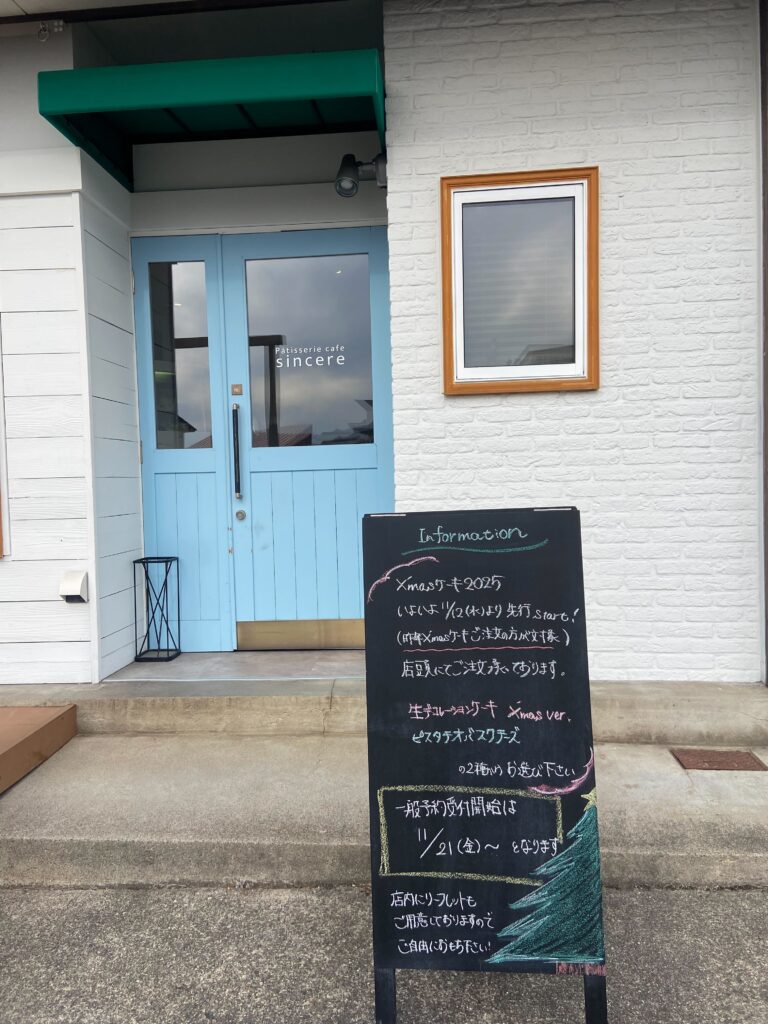 Pâtisserie cafe
sincere
Information
Xmasケーキ2025
いよいよ 11/12(水)より 先行 start!
(昨年Xmasケーキご注文の方が対象)
店頭にてご注文承っております。
生デコレーションケーキ Xmas ver.
ピスタチオバスクチーズ
の2種からお選び下さい
一般予約受付開始は
11/21(金)～ となります
店内にリーフレットも
ご用意しておりますので
ご自由にお持ち下さい!